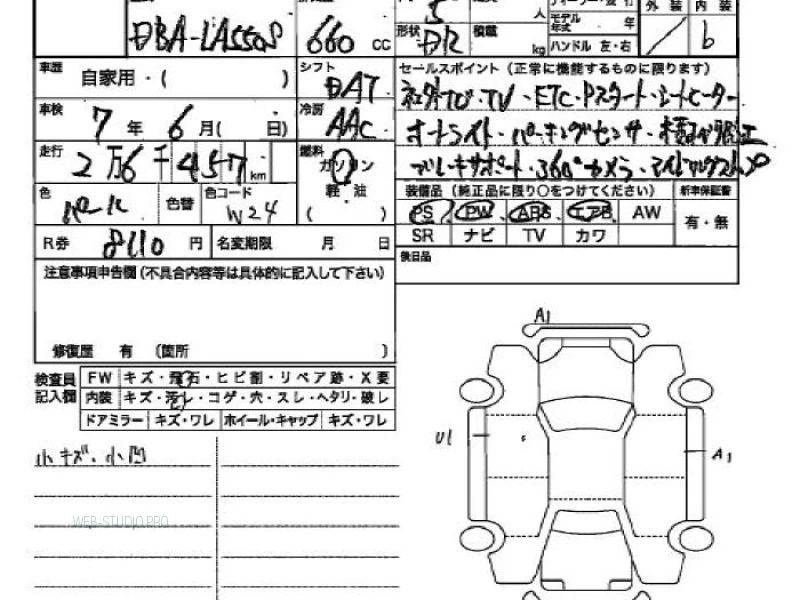 5
人
外装 内装
DBA-LA550S 660 cc
形状 DR 積載 kg
モデル年式 年
ハンドル 左・右
b
車歴 自家用・( )
シフト DAT
車検 7年 6月( 日)
冷房 AAC
走行 2万6千457km
燃料 ガソリン 軽・油 ( )
色 パール 色替 色コード W24
R券 8110円 名変期限 月 日
注意事項申告欄(不具合内容等は具体的に記入して下さい)
修復歴 有 (箇所 )
セールスポイント(正常に機能するものに限ります)
TV・ETC・Pスタート・シートヒーター
オートライト・パーキングセンサ・
ブレーキサポート・360°カメラ・
装備品(純正品に限り○をつけてください) 新車保証書
PS PW ABS エアB AW 有・無
SR ナビ TV カワ
後日品
検査員記入欄
FW キズ・飛石・ヒビ割・リペア跡・X要
内装 キズ・汚レ・コゲ・穴・スレ・ヘタリ・破レ
ドアミラー キズ・ワレ ホイール・キャップ キズ・ワレ
小キズ、小凹
WEB-STUDIO.PRO
A1
U1
A1